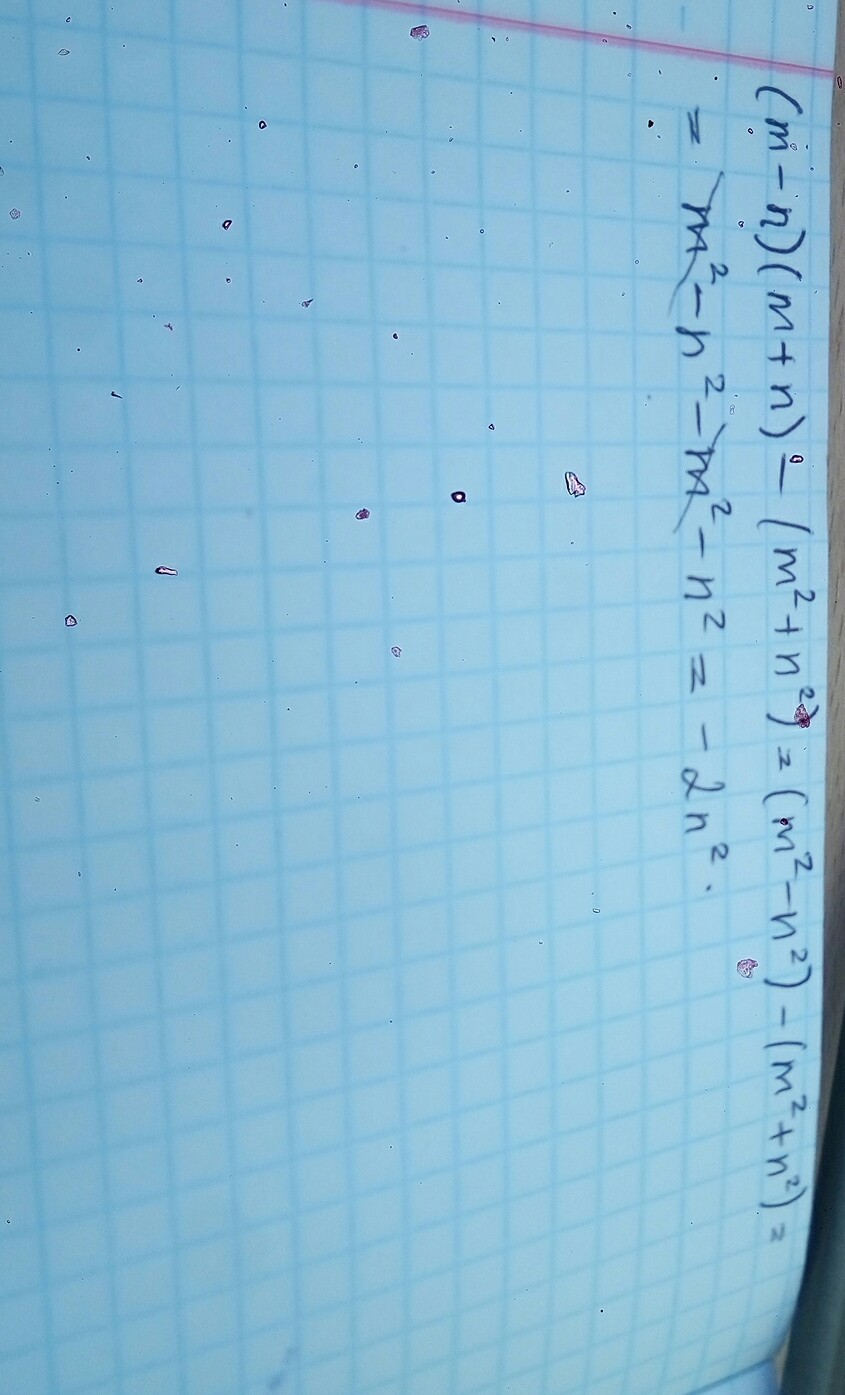 (m-n)(m+n)-(m²+n²)=(m²-n²)-(m²+n²)=
=m²-n²-m²-n²=-2n².